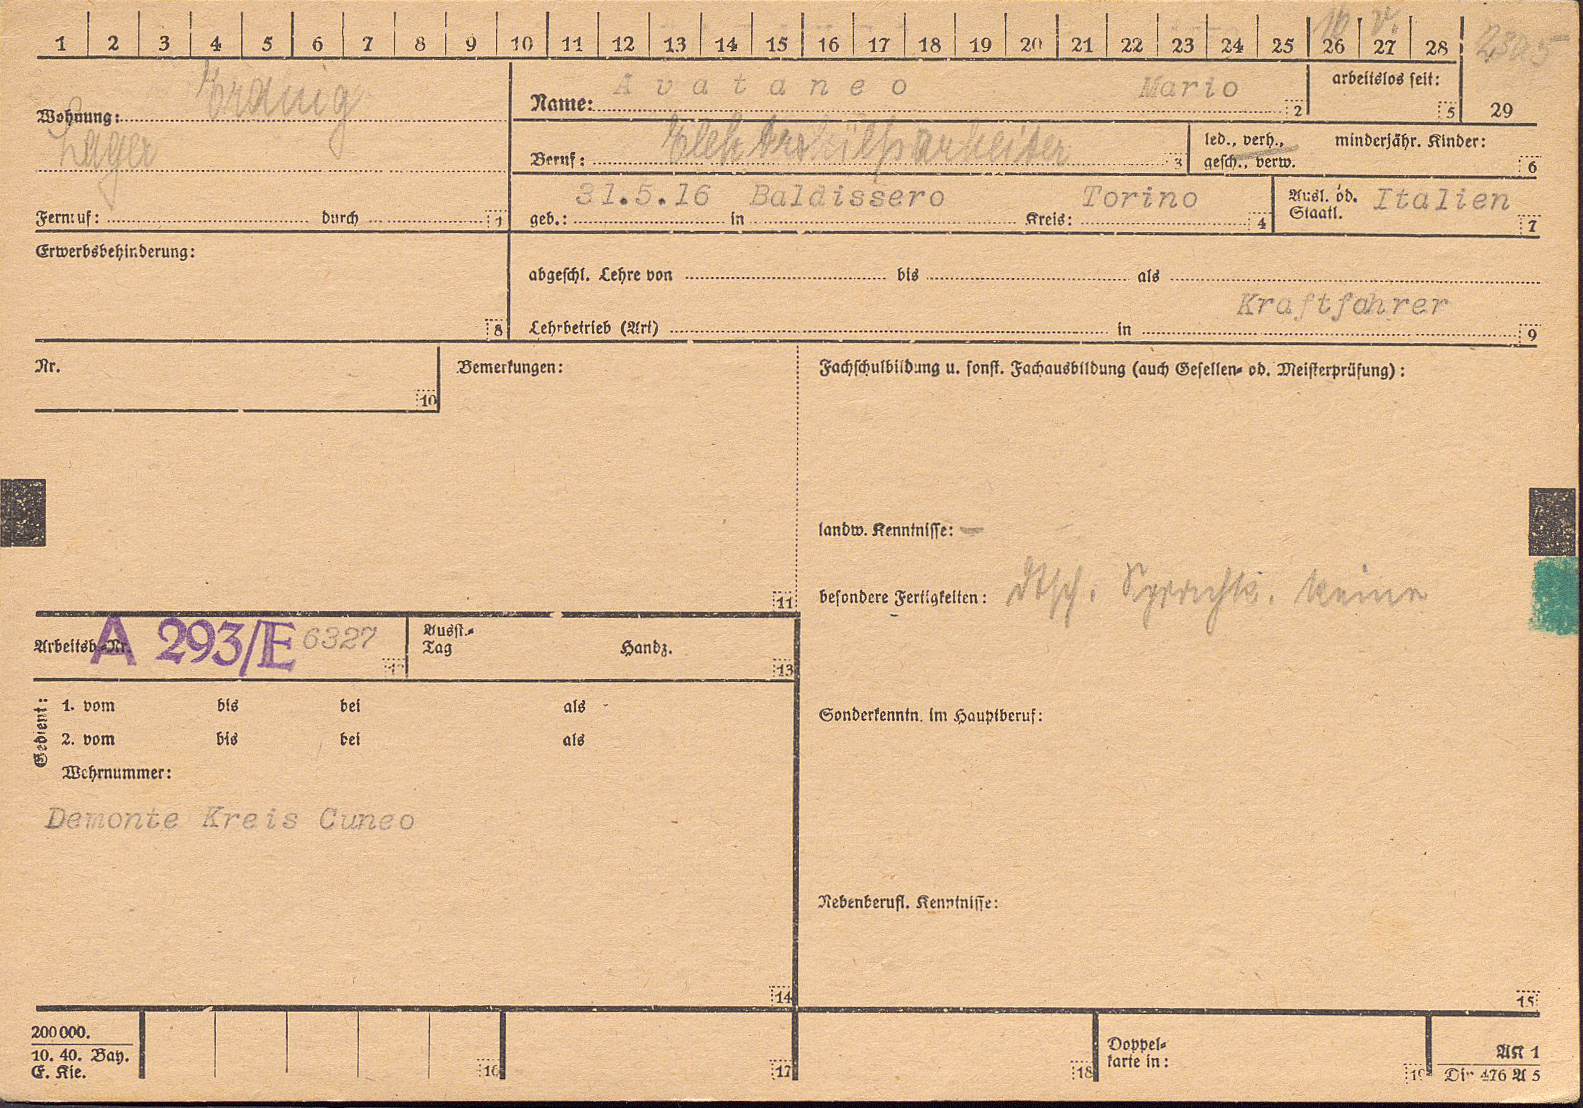 1 2 3 4 5 6 7 8 9 10 11 12 13 14 15 16 17 18 19 20 21 22 23 24 25 26 27 28 29
16 V. 2305
Wohnung: Erding
Lager
Fernruf: durch 1
Name: Avataneo Mario 2
arbeitslos seit: 5
Beruf: Elektrohilfsarbeiter 3
led., verh., gesch., verw.
minderjähr. Kinder: 6
geb.: 31.5.16 in Baldissero Kreis: Torino 4
Ausl. od. Staatl. Italien 7
Erwerbsbehinderung: 8
abgeschl. Lehre von bis als
Kraftfahrer
Lehrbetrieb (Art) in 9
Nr. 10
Bemerkungen: 11
Fachschulbildung u. sonst. Fachausbildung (auch Gesellen- od. Meisterprüfung):
landw. Kenntnisse: –
besondere Fertigkeiten: dtsch. Sprachk. keine
Arbeitsb.-Nr. A 293/E 6327
Ausst.-Tag Handz. 13
Gedient:
1. vom bis bei als
2. vom bis bei als
Wehrnummer:
Demonte Kreis Cuneo
14
Sonderkenntn. im Hauptberuf:
Nebenberufl. Kenntnisse:
15
200 000.
10. 40. Bay.
E. Kie.
16 17 18
Doppel-
karte in: 19
AN 1
Din 476 A 5